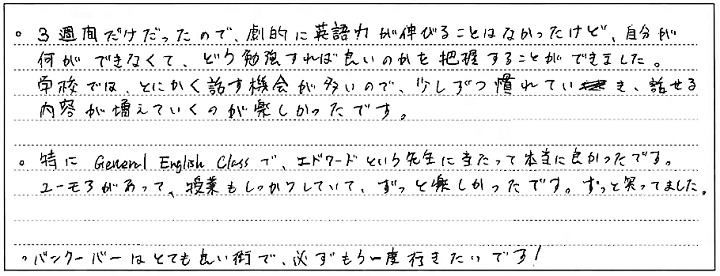 。3週間だけだったので、劇的に英語力が伸びることはなかったけど、自分が
何ができなくて、どう勉強すれば良いのかを把握することができました。
学校では、とにかく話す機会が多いので、少しずつ慣れていき、話せる
内容が増えていくのが楽しかったです。
。特に General English Classで、エドワードという先生に当たって本当に良かったです。
ユーモアがあって、授業もしっかりしていて、ずっと楽しかったです。ずっと笑ってました。
。バンクーバーはとても良い街で、必ずもう一度行きたいです!